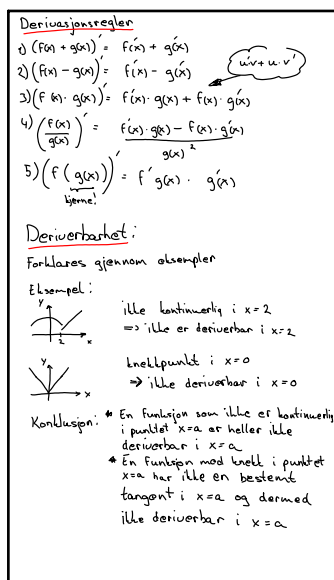 Derivasjonsregler
1) (f(x) + g(x))' = f'(x) + g'(x)
2) (f(x) - g(x))' = f'(x) - g'(x)
u'v + u · v'
3) (f(x) · g(x))' = f'(x) · g(x) + f(x) · g'(x)
4) (f(x)/g(x))' = f'(x) · g(x) - f(x) · g'(x) / g(x)²
5) (f(g(x)))' = f'g(x) · g'(x)
kjerne!
Deriverbarhet:
Forklares gjennom eksempler
Eksempel:
y
ikke kontinuerlig i x=2
=> ikke er deriverbar i x=2
2 x
y
knekkpunkt i x=0
=> ikke deriverbar i x=0
x
Konklusjon: * En funksjon som ikke er kontinuerlig
i punktet x=a er heller ikke
deriverbar i x=a
* En funksjon med knekk i punktet
x=a har ikke en bestemt
tangent i x=a og dermed
ikke deriverbar i x=a